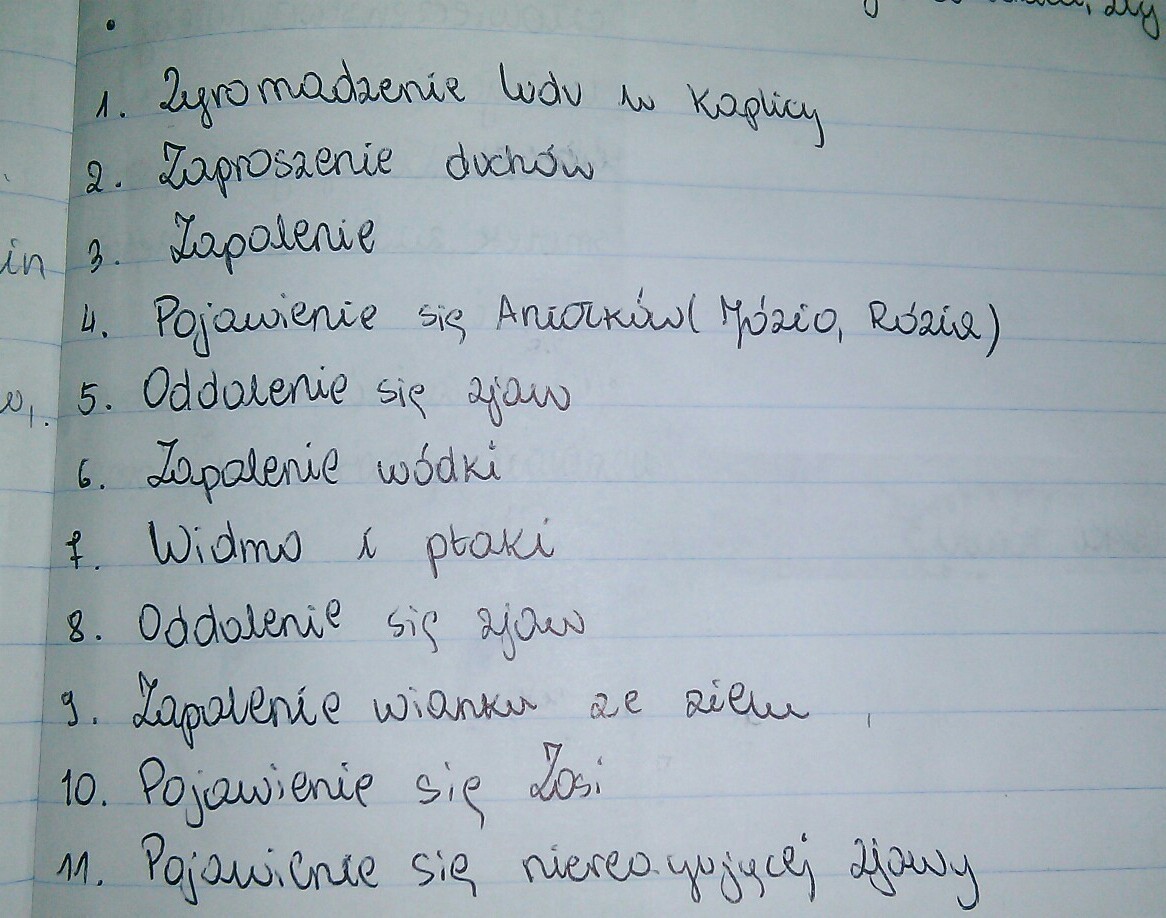 1. Zgromadzenie ludu w kaplicy
2. Zaproszenie duchów
in 3. Zapalenie
4. Pojawienie się Aniołków (Józio, Rózia)
5. Oddalenie się zjaw
6. Zapalenie wódki
7. Widmo i ptaki
8. Oddalenie się zjaw
9. Zapalenie wianku ze zielu
10. Pojawienie się Zosi
11. Pojawienie się niereagującej zjawy